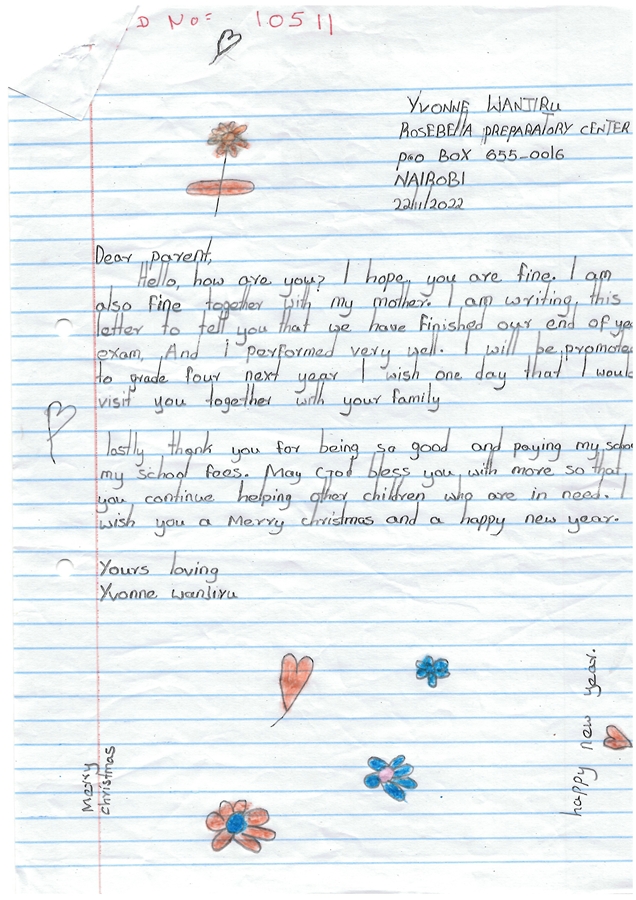 D No= 10511
YVONNE WANJIRU
ROSEBELLA PREPARATORY CENTER
P.O BOX 655-0016
NAIROBI
22/11/2022
Dear parent,
Hello, how are you? I hope you are fine. I am
also fine together with my mother. I am writing this
letter to tell you that we have finished our end of yea
exam, And i performed very well. I will be promote
to grade four next year I wish one day that I woul
visit you together with your family
lastly thank you for being so good and paying my schoo
my school fees. May God bless you with more so that
you continue helping other children who are in need. I
wish you a Merry christmas and a happy new year.
Yours loving
Yvonne wanjiru
Merry
christmas
happy new year.